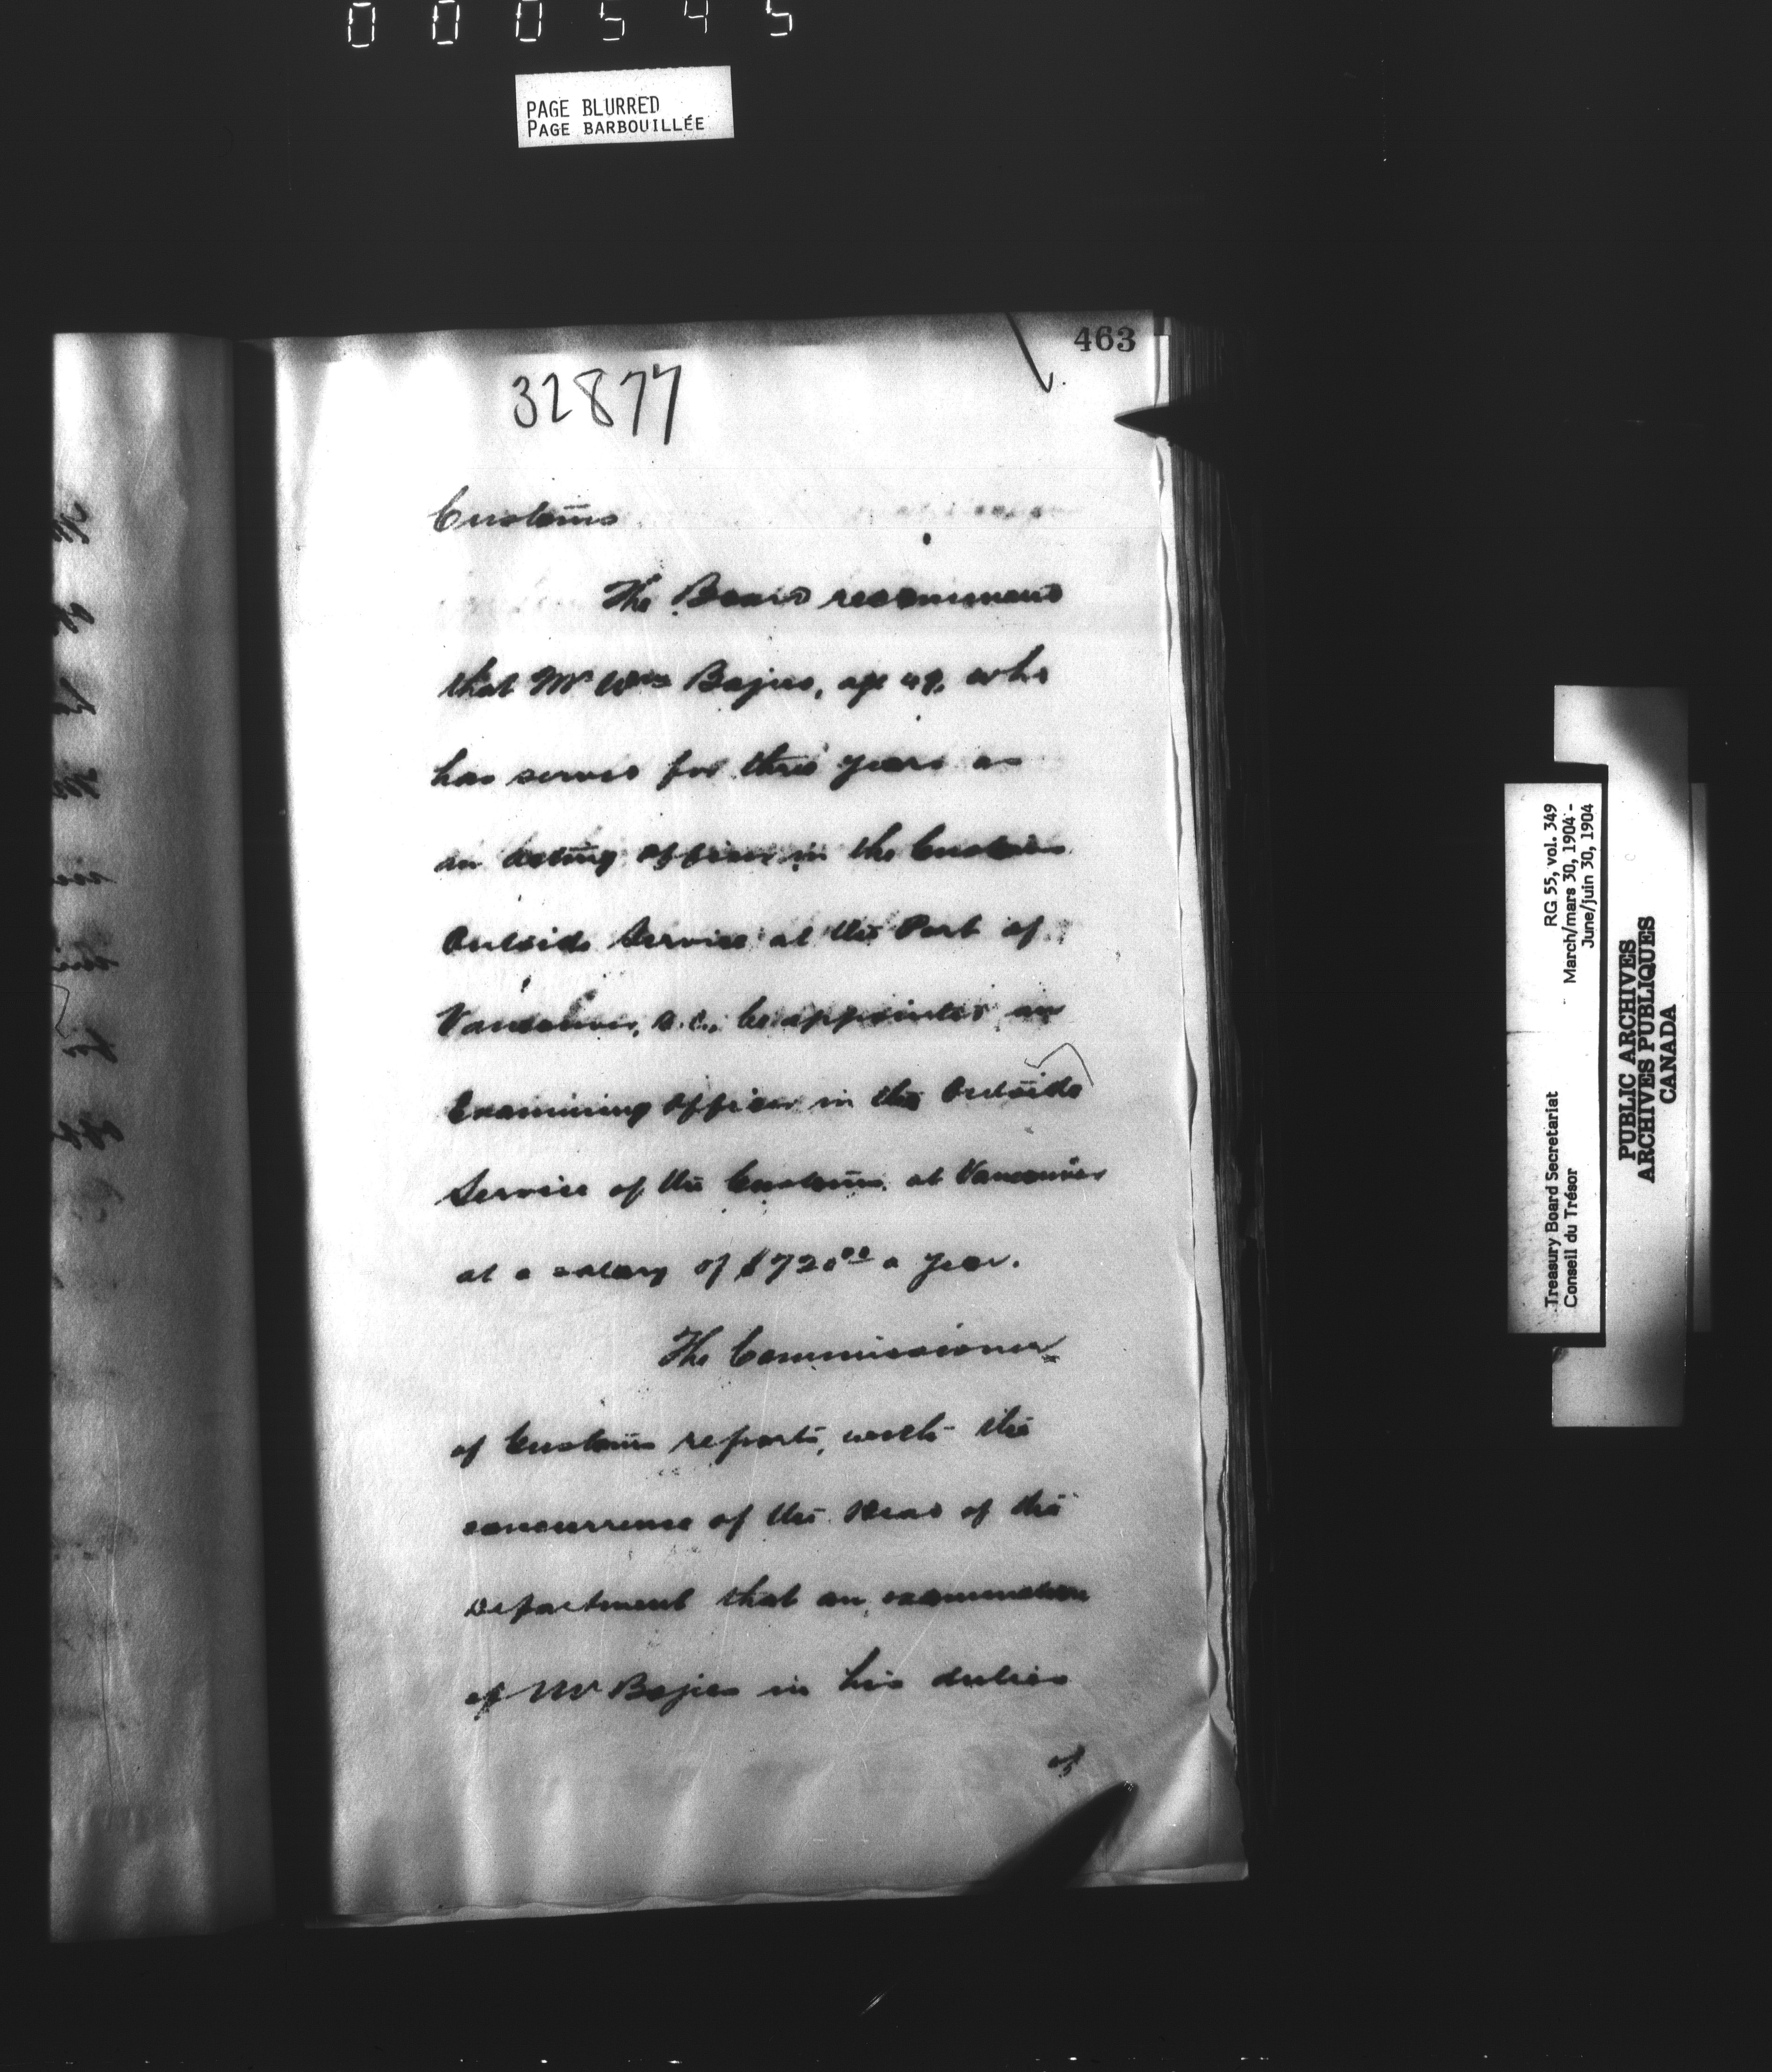 000545
PAGE BLURRED
PAGE BARBOUILLÉE
463
32877
Customs
The Board recommend
that Mr Wm , age 49, who
has served for three years as
an Acting Officer in the Customs
Outside Service at the Port of
Vancouver, B.C., be appointed an
Examining Officer in the Outside
Service of the Customs at Vancouver
at a salary of $720.00 a year.
The Commissioner
of Customs reports, with the
concurrence of the Head of the
Department that an examination
of Mr in his duties
of
Treasury Board Secretariat RG 55, vol. 349
Conseil du Trésor March/mars 30, 1904 -
June/juin 30, 1904
PUBLIC ARCHIVES
ARCHIVES PUBLIQUES
CANADA